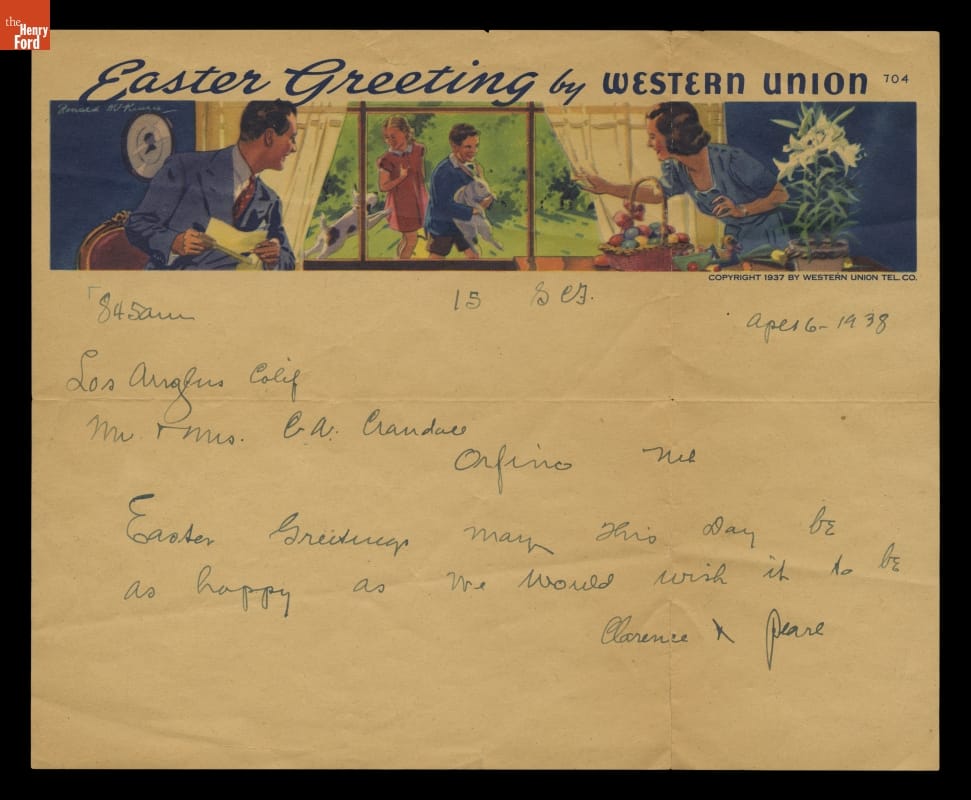 the
Henry
Ford
Easter Greeting by WESTERN UNION 704
COPYRIGHT 1937 BY WESTERN UNION TEL. CO.
845am 15
16-1938
Los Calif
Mr. & Mrs. C.A. Crandall
Orfino Neb
Easter Greetings may this Day be
as happy as we would wish it to be
Clarence & Pearl